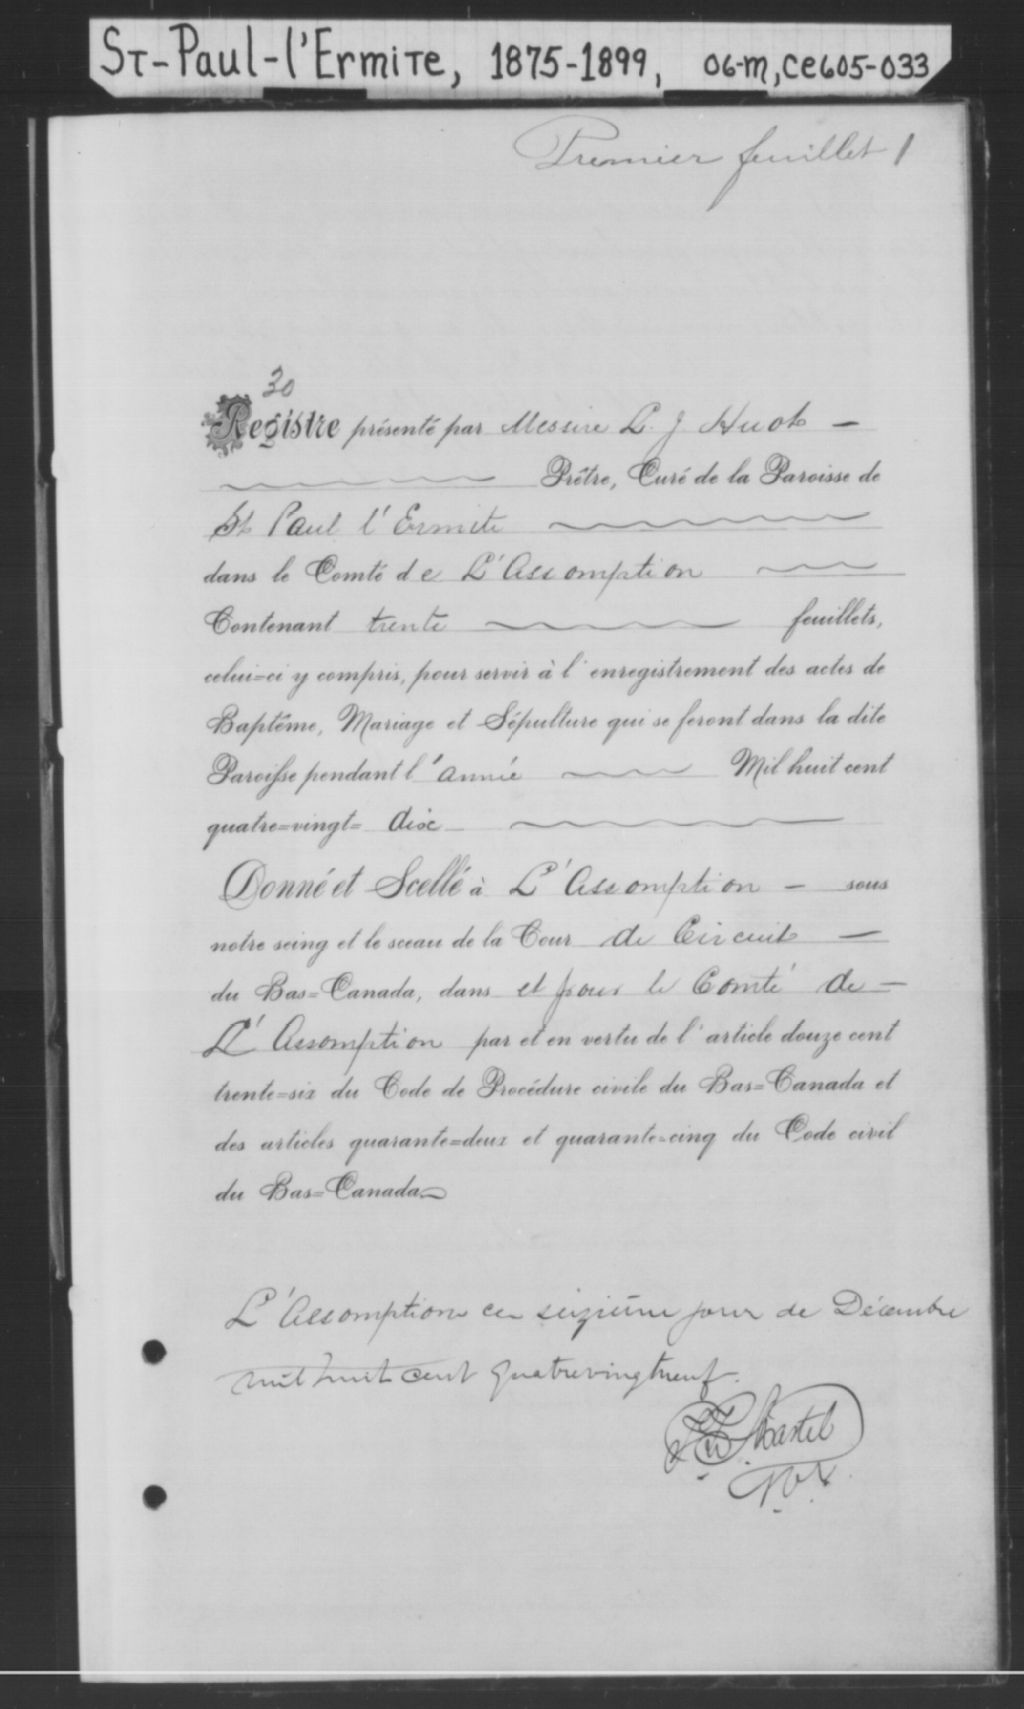 ST-Paul-l'Ermite, 1875-1899, 06-M, CE605-033
Premier feuillet 1
30
Registre présenté par Messire L. J Huot —
Prêtre, Curé de la Paroisse de
St Paul l'Ermite
dans le Comté de L'Assomption
Contenant trente feuillets,
celui=ci y compris, pour servir à l'enregistrement des actes de
Baptême, Mariage et Sépulture qui se feront dans la dite
Paroisse pendant l'année Mil huit cent
quatre=vingt= dix
Donné et Scellé à L'Assomption — sous
notre seing et le sceau de la Cour de Circuit —
du Bas=Canada, dans et pour le Comté de —
L'Assomption par et en vertu de l'article douze cent
trente=six du Code de Procédure civile du Bas=Canada et
des articles quarante=deux et quarante=cinq du Code civil
du Bas=Canada
L'Assomption ce seizième jour de Décembre
mil huit cent quatrevingtneuf.
Martel